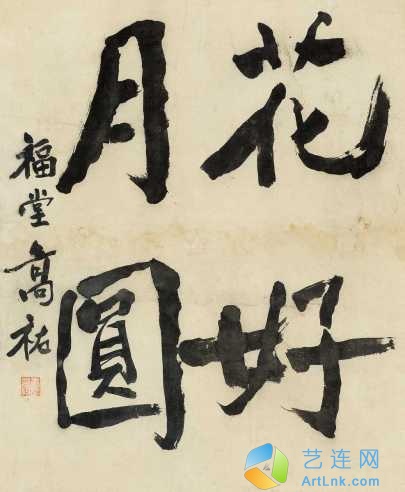 花好
月圓
福堂高祐
艺连网
ArtLnk.com